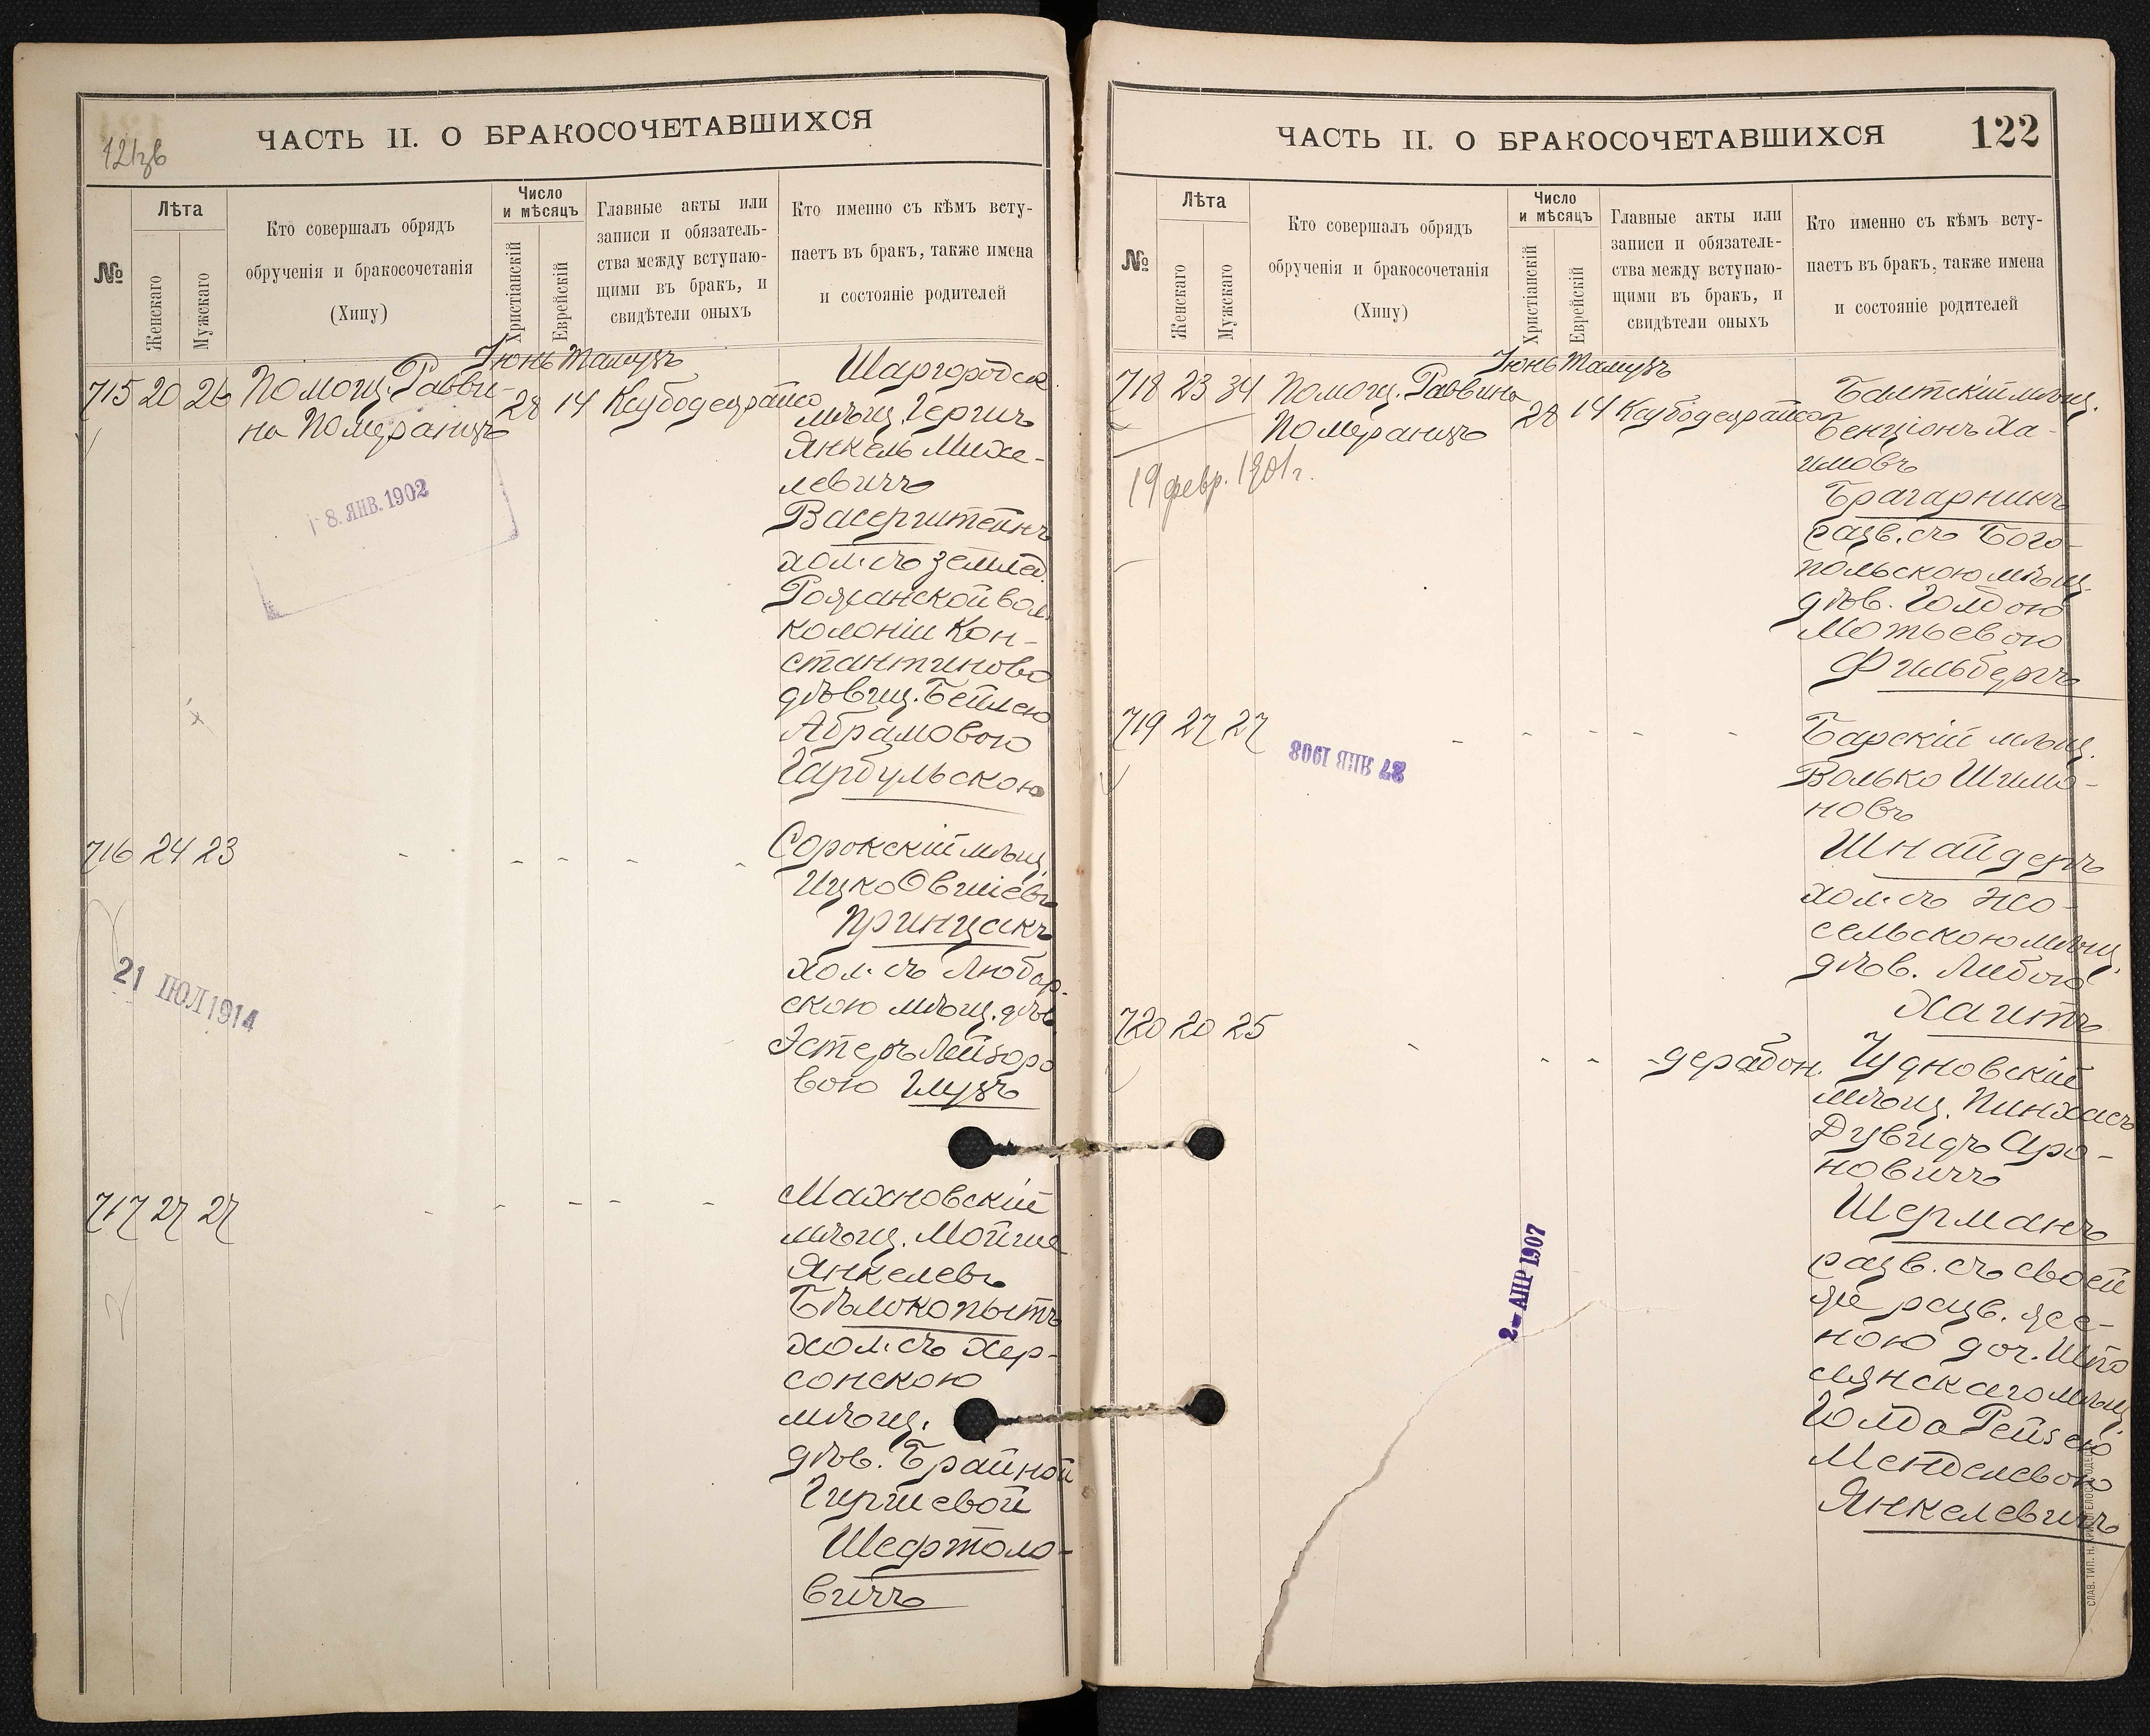 121зв
ЧАСТЬ II. О БРАКОСОЧЕТАВШИХСЯ
№
Лѣта
Женскаго
Мужскаго
Кто совершалъ обрядъ
обрученія и бракосочетанія
(Хипу)
Число
и мѣсяцъ
Христіанскій
Еврейскій
Главные акты или
записи и обязатель-
ства между вступаю-
щими въ бракъ, и
свидѣтели оныхъ
Кто именно съ кѣмъ всту-
паетъ въ бракъ, также имена
и состояніе родителей
Іюнь Тамузъ
715 20 26 Помощ. Равви-
на Померанцъ
28 14
Шаргородск.
мѣщ. Гершъ
Янкель Михе-
левичъ
Васерштейнъ
хол. съ землед.
колоніи Кон-
стантиново
дѣвиц. Бейлею
Абрамовою
Гарбульскою
8. ЯНВ. 1902
716 24 23 - - - - -
Сорокскій мѣщ.
Ицко Овшіевъ
Принцакъ
хол. съ Любар-
скою мѣщ. дѣв.
Эстеръ Лейзоро
вою Глузъ
21 ІЮЛ 1914
717 27 27 - - - - -
Махновскій
мѣщ. Мойше
Янкелевъ
Бѣлокопытъ
хол. съ Хер-
сонскою
мѣщ.
дѣв. Брайной
Гиршевой
Шефтоло-
вичъ
ЧАСТЬ II. О БРАКОСОЧЕТАВШИХСЯ
122
№
Лѣта
Женскаго
Мужскаго
Кто совершалъ обрядъ
обрученія и бракосочетанія
(Хипу)
Число
и мѣсяцъ
Христіанскій
Еврейскій
Главные акты или
записи и обязатель-
ства между вступаю-
щими въ бракъ, и
свидѣтели оныхъ
Кто именно съ кѣмъ всту-
паетъ въ бракъ, также имена
и состояніе родителей
Іюнь Тамузъ
718 23 34 Помощ. Раввина
Померанцъ
28 14
19 февр. 1901 г.
Балтскій мѣщ.
Бенціонъ Ха-
имовъ
Брагарникъ
разв. съ Бого-
польскою мѣщ.
дѣв. Голдою
Мотьевою
Фильбергъ
719 27 27 - - - - -
27 ЯНВ 1908
Барскій мѣщ.
Волько Шимо-
новъ
Шнайдеръ
хол. съ Но-
сельскою мѣщ.
дѣв. Либою
Хаитъ
720 20 25 - - - -
Чудновскій
мѣщ. Пинхасъ
Дувидъ Аро-
новичъ
Шерманъ
разв. съ своей
же разв. же-
ною доч. Шпо
лянскаго мѣщ.
Голда Рейзею
Менделевою
Янкелевичъ
2- АПР 1907